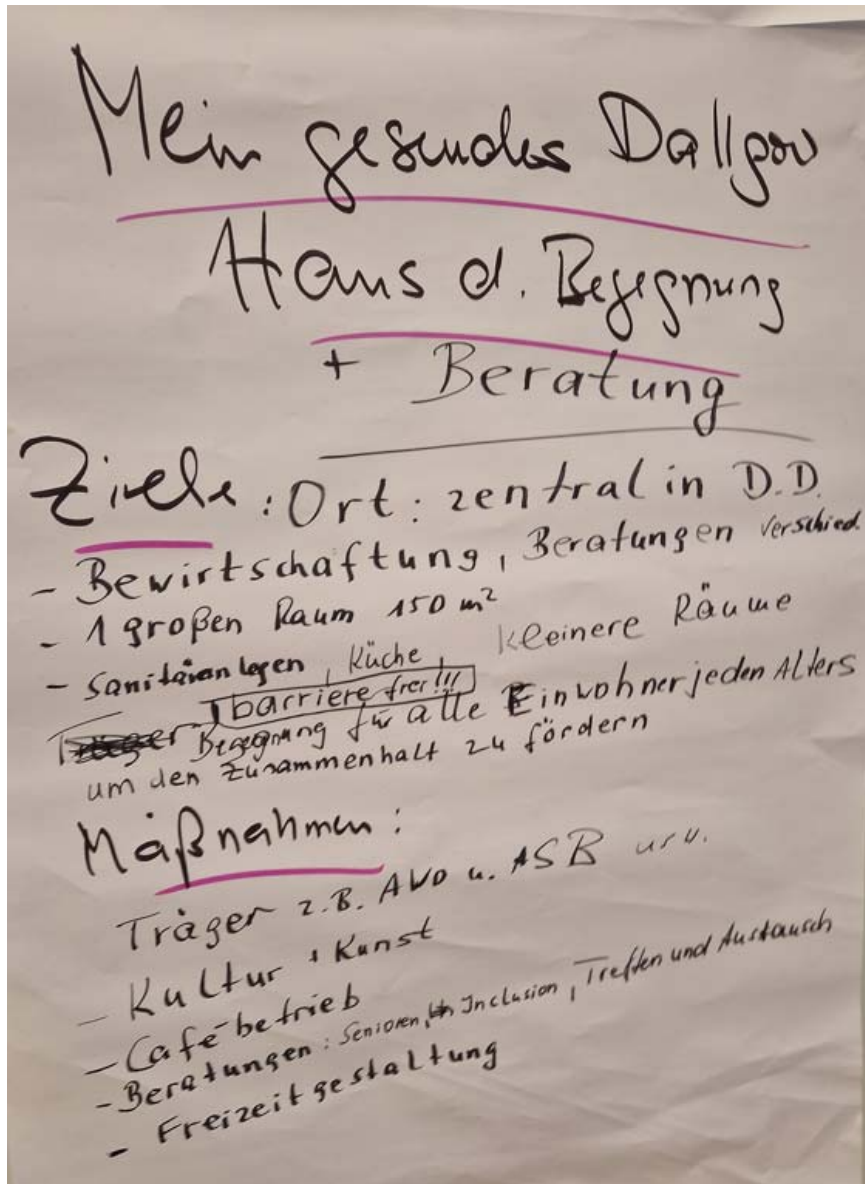 Mein gesundes Dallgow
Haus d. Begegnung
+ Beratung
Ziele : Ort : zentral in D.D.
- Bewirtschaftung, Beratungen verschied.
- 1 großen Raum 150 m²
- Sanitäranlagen, Küche, kleinere Räume
barriere frei!!!
Begegnung für alle Einwohner jeden Alters
um den Zusammenhalt zu fördern
Maßnahmen :
Träger z.B. AWO u. ASB usw.
- Kultur + Kunst
- Café betrieb
- Beratungen : Senioren, Inclusion, Treffen und Austausch
- Freizeitgestaltung